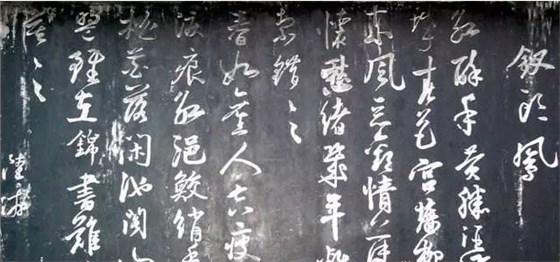 釵頭鳳
紅酥手黃縢酒
城春色宮墻柳
東風惡歡情薄
懷愁緒幾年離
索錯々
春如舊人空瘦
淚痕紅浥鮫綃透
桃花落閑池閣山
盟雖在錦書難
莫々
陸游